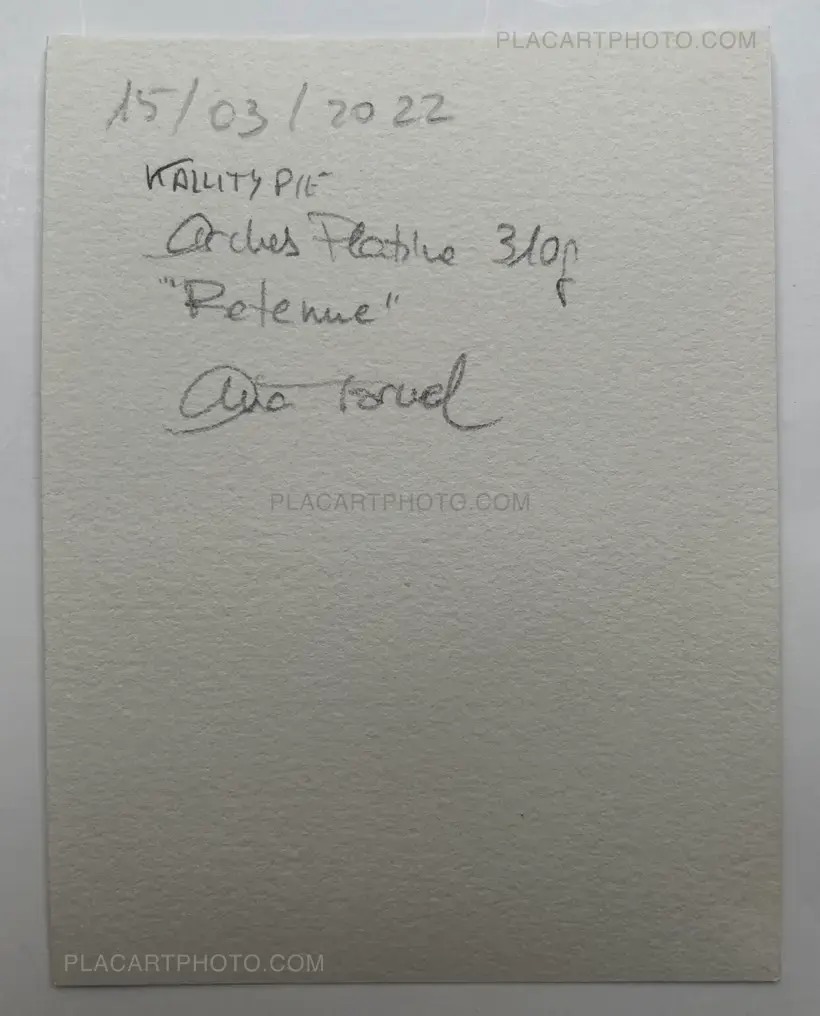 PLACARTPHOTO.COM
15/03/2022
KALLITYPIE
Arches Platine 310g
"Retenue"
PLACARTPHOTO.COM
PLACARTPHOTO.COM